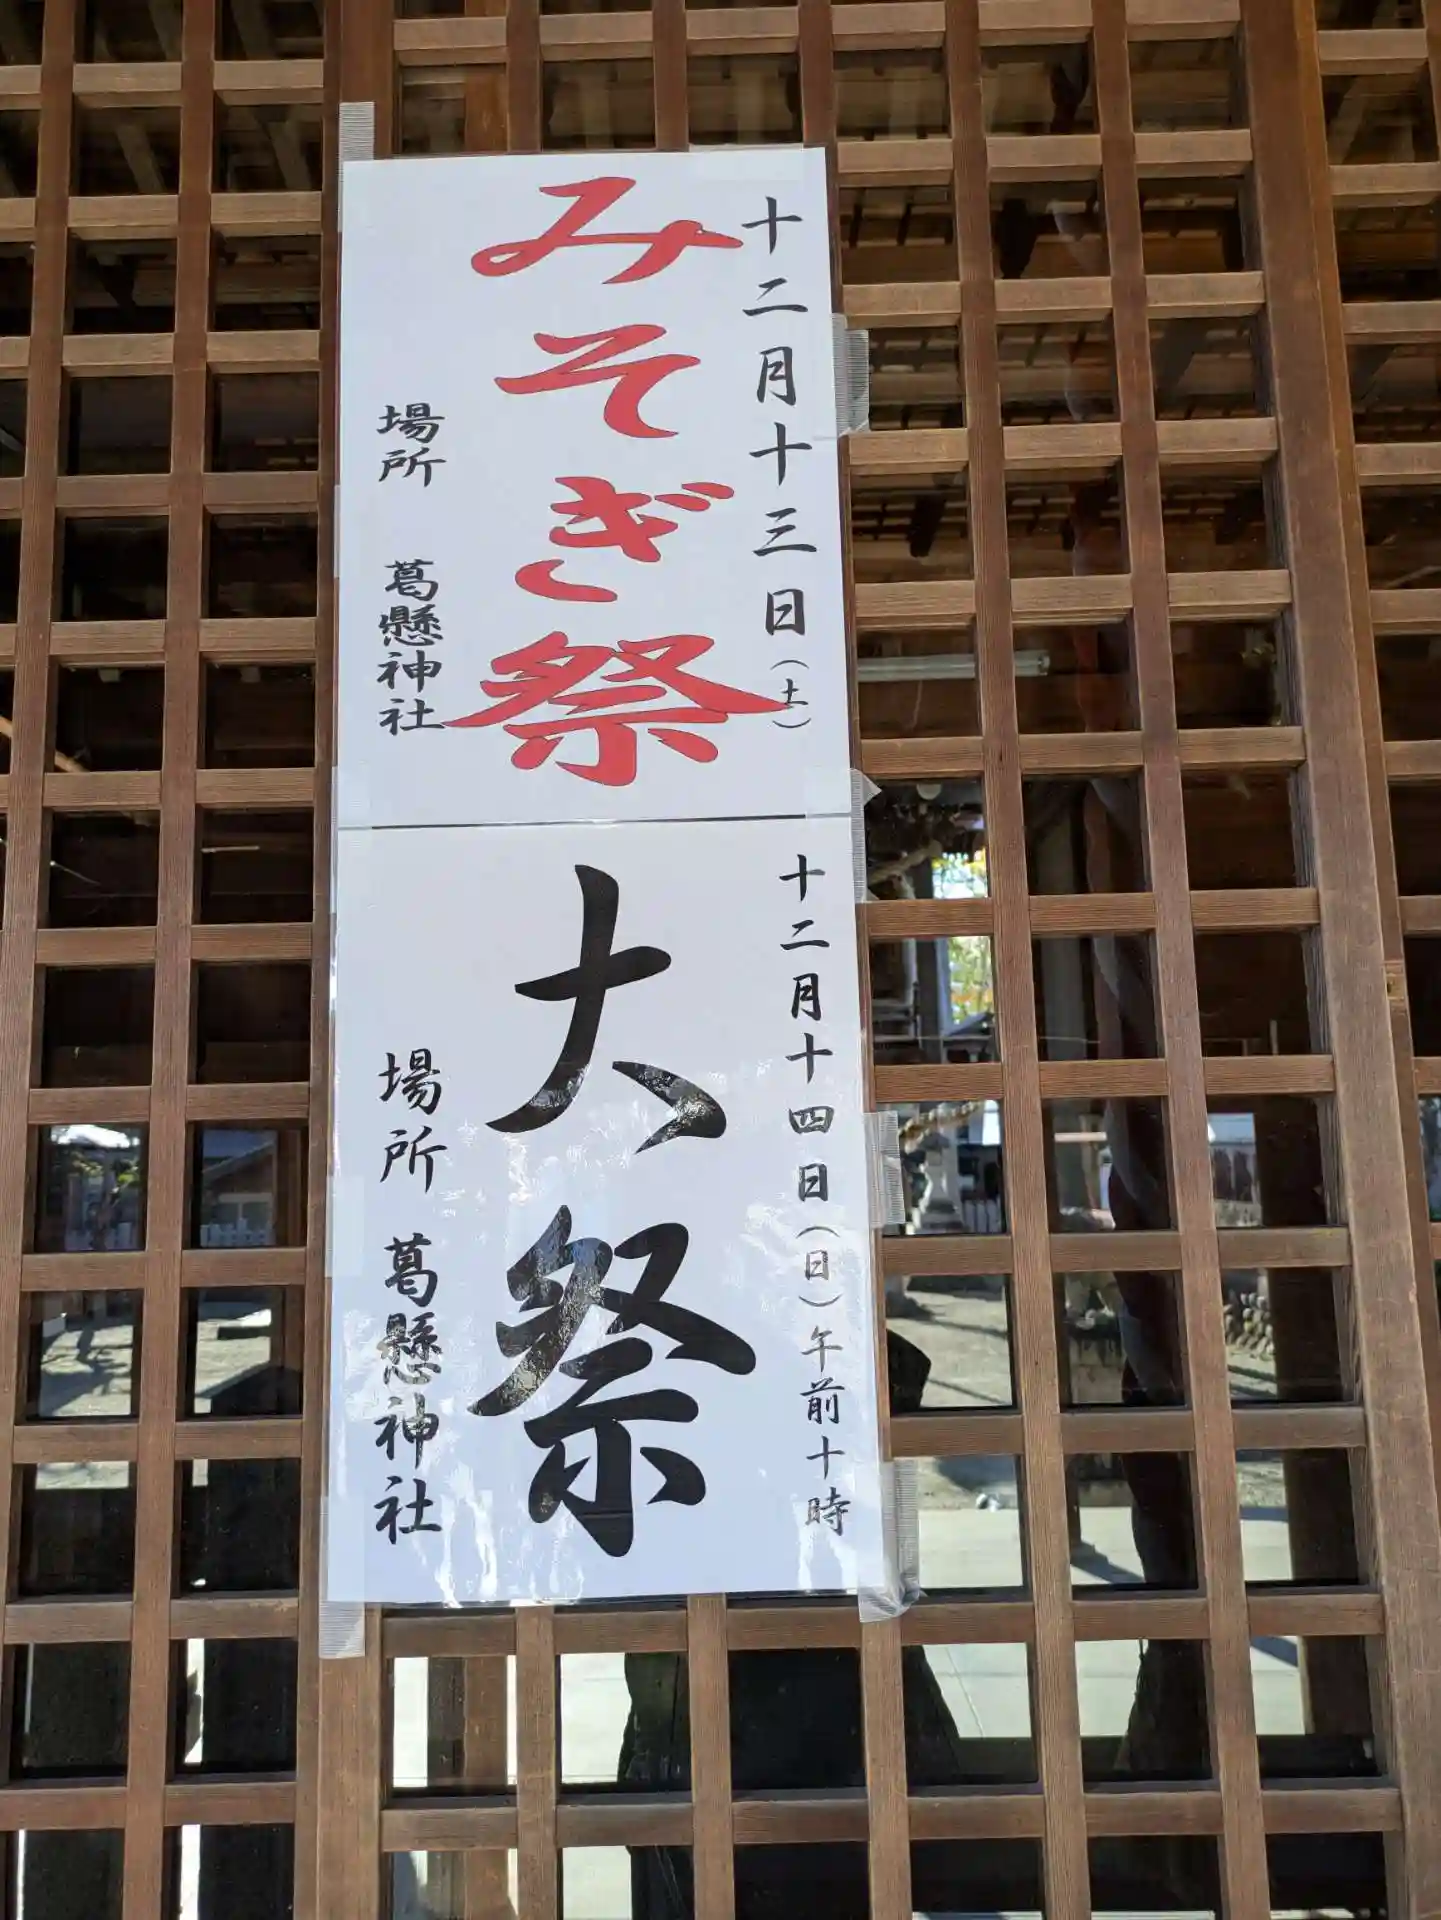 十二月十三日（土）
みそぎ祭
場所　葛懸神社
十二月十四日（日）午前十時
大祭
場所　葛懸神社